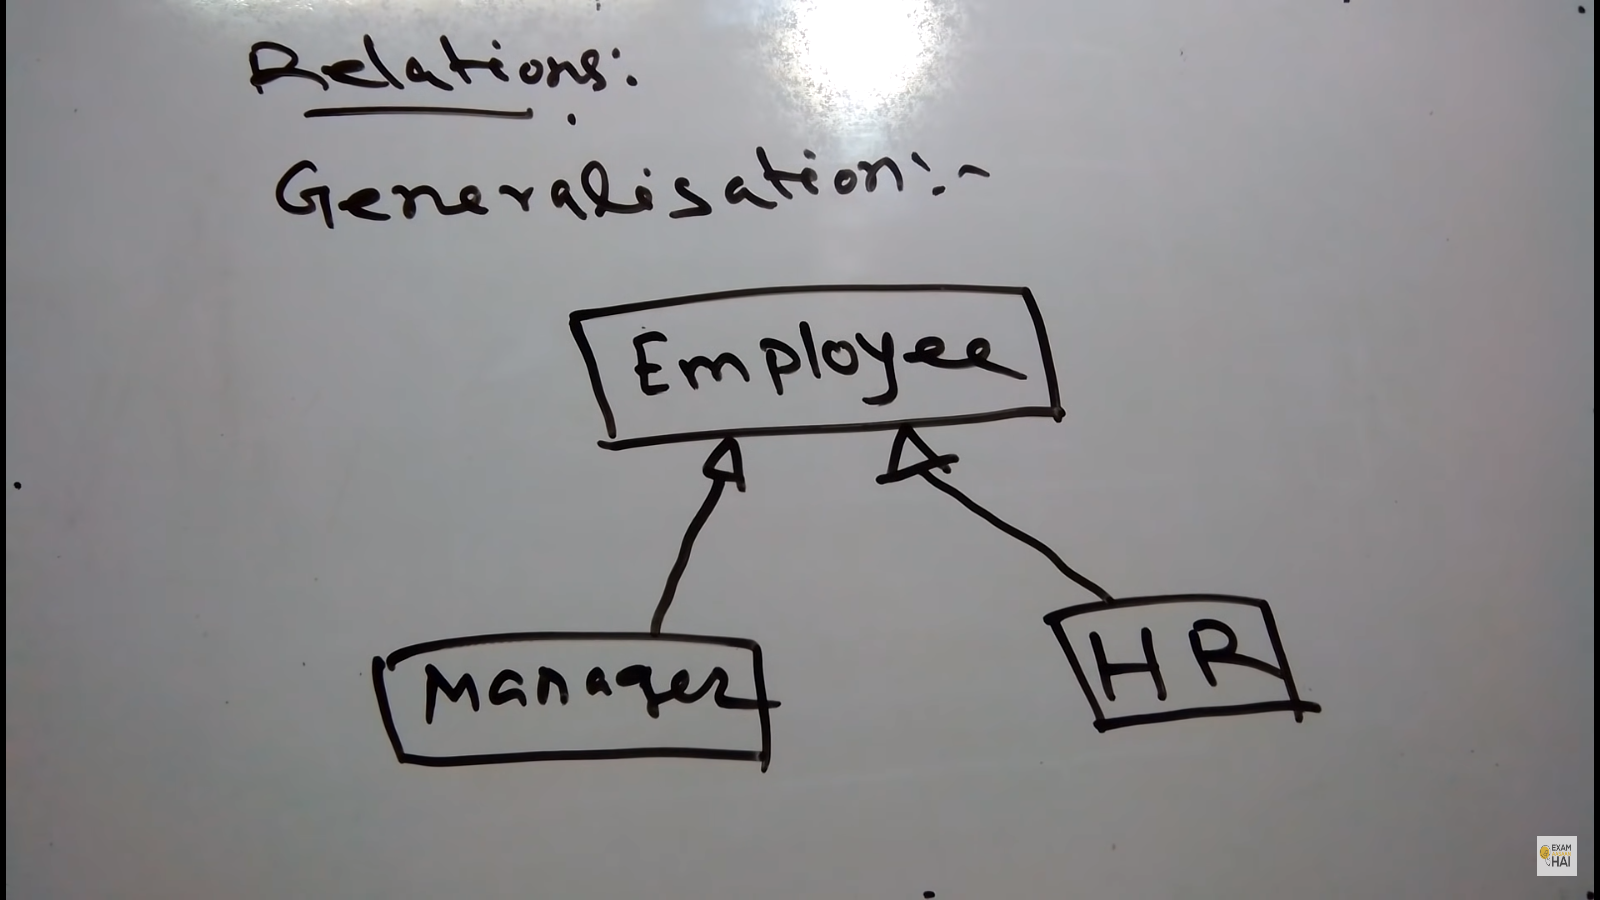 Relations:
Generalisation:-
Employee
Manager
HR
EXAM
HAI